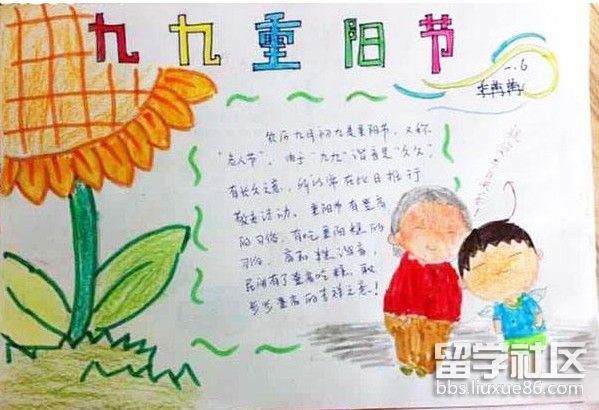 九九重阳节
一.6
农历九月初九是重阳节，又称
"老人节"。由于"九九"谐音是"久久"，
有长久之意，所以常在此日推行
敬老活动。重阳节有登高
的习俗，有吃重阳糕的
习俗，高和糕谐音，
民间有了登高吃糕，取
步步登高的吉祥之意！
留学社区
bbs.liuxue86.com